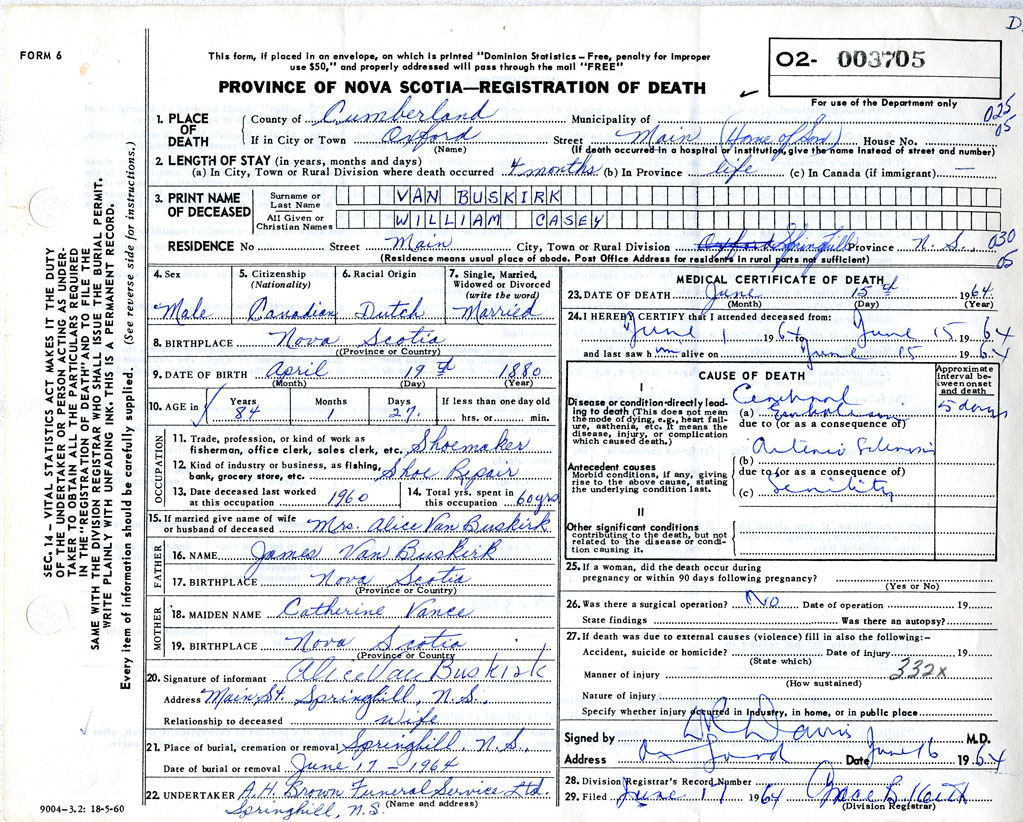 D
FORM 6
This form, if placed in an envelope, on which is printed "Dominion Statistics – Free, penalty for improper
use $50," and properly addressed will pass through the mail "FREE"
02- 003705
PROVINCE OF NOVA SCOTIA—REGISTRATION OF DEATH
For use of the Department only
025
05
1. PLACE OF DEATH { County of Cumberland Municipality of
If in City or Town Oxford Street Main (Home of Son) House No.
(Name) (If death occurred in a hospital or institution, give the name instead of street and number)
2. LENGTH OF STAY (in years, months and days)
(a) In City, Town or Rural Division where death occurred 4 months (b) In Province life (c) In Canada (if immigrant) —
3. PRINT NAME OF DECEASED { Surname or Last Name VAN BUSKIRK
All Given or Christian Names WILLIAM CASEY
RESIDENCE No Street Main City, Town or Rural Division Oxford Springhill Province N.S. 030
05
(Residence means usual place of abode. Post Office Address for residents in rural parts not sufficient)
SEC. 14 – VITAL STATISTICS ACT MAKES IT THE DUTY
OF THE UNDERTAKER OR PERSON ACTING AS UNDER-
TAKER TO OBTAIN ALL THE PARTICULARS REQUIRED
IN THE "REGISTRATION OF DEATH" AND TO FILE THE
SAME WITH THE DIVISION REGISTRAR WHO SHALL ISSUE THE BURIAL PERMIT.
WRITE PLAINLY WITH UNFADING INK. THIS IS A PERMANENT RECORD.
Every item of information should be carefully supplied. (See reverse side for instructions.)
4. Sex
Male
5. Citizenship (Nationality)
Canadian
6. Racial Origin
Dutch
7. Single, Married, Widowed or Divorced (write the word)
Married
8. BIRTHPLACE Nova Scotia
(Province or Country)
9. DATE OF BIRTH April 19th 1880
(Month) (Day) (Year)
10. AGE in Years 84 Months 1 Days 27 If less than one day old hrs. or min.
OCCUPATION
11. Trade, profession, or kind of work as
fisherman, office clerk, sales clerk, etc. Shoemaker
12. Kind of industry or business, as fishing,
bank, grocery store, etc. Shoe Repair
13. Date deceased last worked
at this occupation 1960
14. Total yrs. spent in
this occupation 60yrs
15. If married give name of wife
or husband of deceased Mrs. Alice Van Buskirk
FATHER
16. NAME James Van Buskirk
17. BIRTHPLACE Nova Scotia
(Province or Country)
MOTHER
18. MAIDEN NAME Catherine Vance
19. BIRTHPLACE Nova Scotia
(Province or Country)
20. Signature of informant Alice Van Buskirk
Address Main St. Springhill, N.S.
Relationship to deceased wife
21. Place of burial, cremation or removal Springhill, N.S.
Date of burial or removal June 17 – 1964
22. UNDERTAKER A.H. Brown Funeral Service Ltd.
(Name and address)
Springhill, N.S.
9004–3.2: 18-5-60
MEDICAL CERTIFICATE OF DEATH
23. DATE OF DEATH June 15th 1964
(Month) (Day) (Year)
24. I HEREBY CERTIFY that I attended deceased from:
June 1 1964 to June 15 1964
and last saw him alive on June 15 1964
CAUSE OF DEATH
Approximate interval between onset and death
I
Disease or condition directly lead-
ing to death (This does not mean
the mode of dying, e.g., heart fail-
ure, asthenia, etc. It means the
disease, injury, or complication
which caused death.)
Cerebral
(a) Embolism 5 days
due to (or as a consequence of)
Arterio Sclerosis
(b)
due to (or as a consequence of)
(c) Senility
Antecedent causes
Morbid conditions, if any, giving
rise to the above cause, stating
the underlying condition last.
II
Other significant conditions
contributing to the death, but not
related to the disease or condi-
tion causing it.
25. If a woman, did the death occur during
pregnancy or within 90 days following pregnancy?
(Yes or No)
26. Was there a surgical operation? No Date of operation 19
State findings Was there an autopsy?
27. If death was due to external causes (violence) fill in also the following:–
Accident, suicide or homicide? Date of injury 19
(State which)
Manner of injury 332x
(How sustained)
Nature of injury
Specify whether injury occurred in industry, in home, or in public place
Signed by Davis M.D.
Address Oxford Date June 16 1964
28. Division Registrar's Record Number
29. Filed June 17 1964 Grace
(Division Registrar)